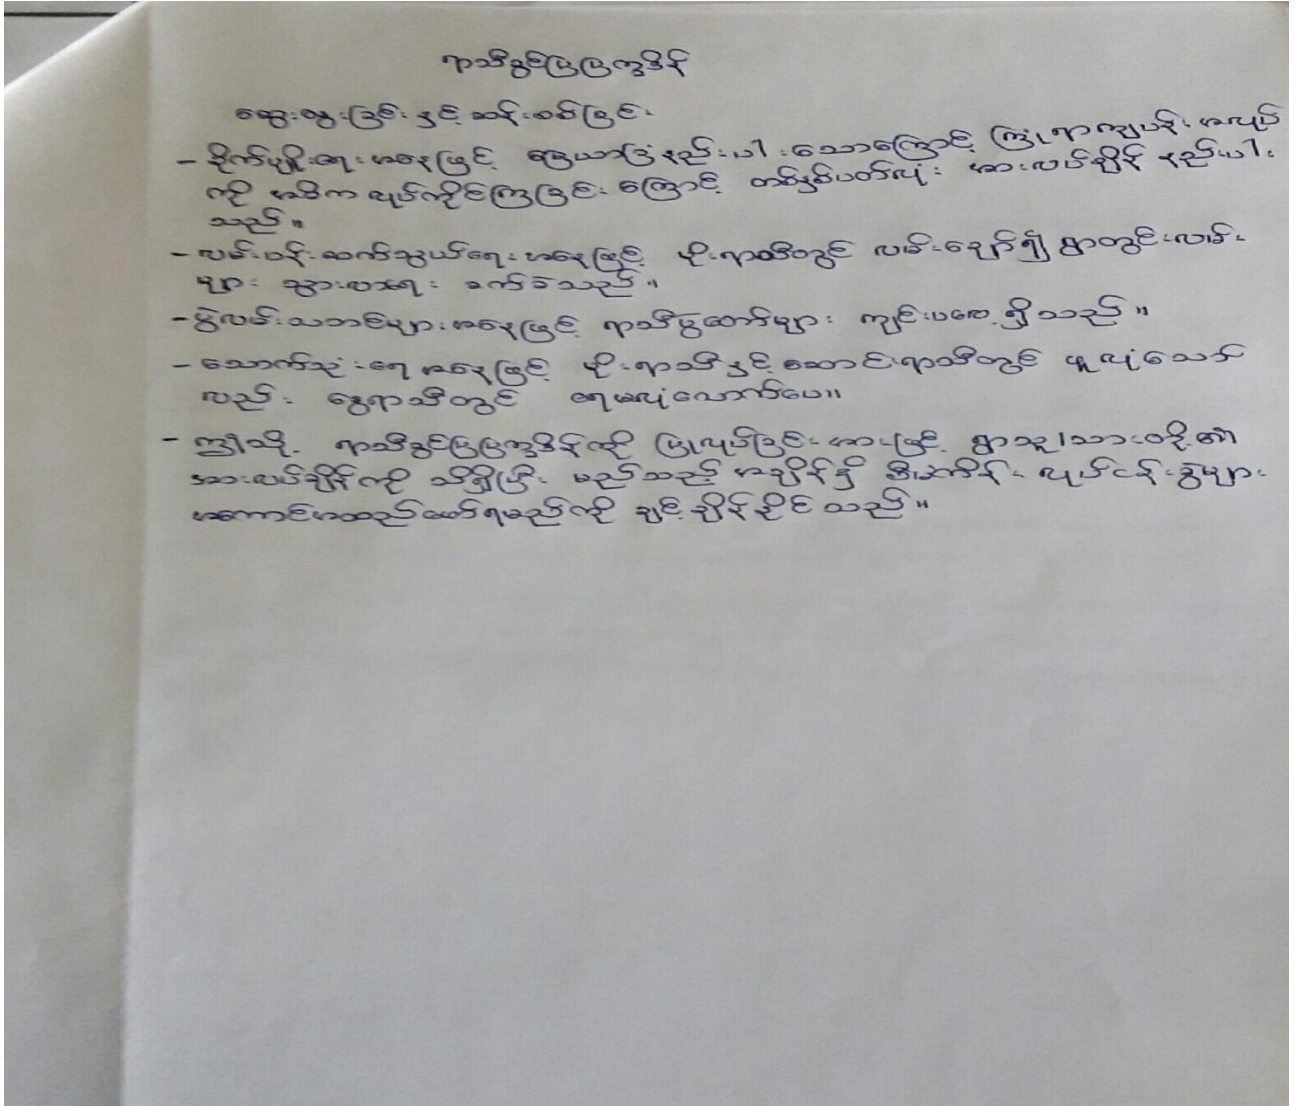 ရာသီခွင်ပြပြက္ခဒိန်
ဆွေးနွေးခြင်းနှင့် ဆန်းစစ်ခြင်း
- စိုက်ပျိုးရေးအနေဖြင့် မြေယာပြုံနည်းပါးသောကြောင့် ကြုံရာကျပန်းအလုပ်
ကို အဓိက လုပ်ကိုင်ကြခြင်းကြောင့် တစ်နှစ်ပတ်လုံး အားလပ်ချိန် နည်းပါး
သည်။
- လမ်းပန်းဆက်သွယ်ရေးအနေဖြင့် မိုးရာသီတွင် လမ်းချော်၍ ရွာတွင်းလမ်း
များ သွားလာရေး ခက်ခဲသည်။
- ပွဲလမ်းသဘင်များအနေဖြင့် ရာသီပွဲတော်များ ကျင်းပလေ့ရှိသည်။
- သောက်သုံးရေအနေဖြင့် မိုးရာသီနှင့်ဆောင်းရာသီတွင် ဖူလုံသော်
လည်း နွေရာသီတွင် ရေမလုံလောက်ပေ။
- ဤသို့ ရာသီခွင်ပြပြက္ခဒိန်ကို ပြုလုပ်ခြင်းအားဖြင့် ရွာသူ/သားတို့၏
အားလပ်ချိန်ကို သိရှိပြီး မည်သည့်အချိန်၌ စီမံကိန်း လုပ်ငန်းစဉ်များ
အကောင်အထည်ဖော်ရမည်ကို ချင့်ချိန်နိုင်သည်။